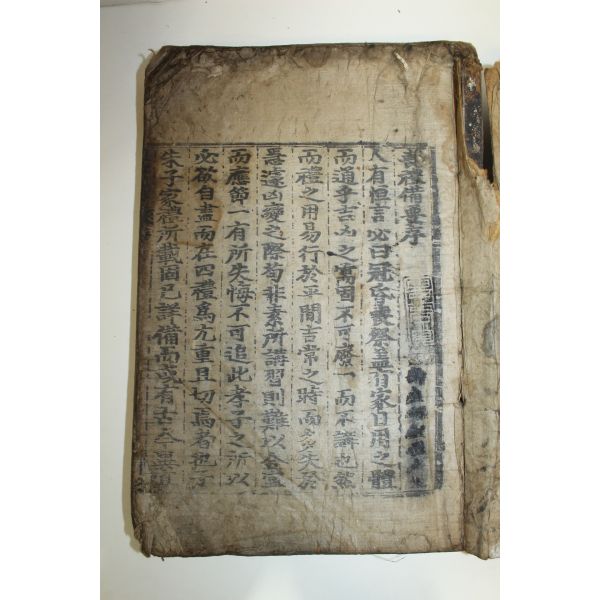 喪禮備要序
人有恒言必曰冠昏喪祭盖有家日用之體
而通乎吉凶之需固不可廢一而不講也然
而禮之用易行於平閒吉常之時而多失於
急遽凶變之際苟非素所講習則難以合宜
而應節一有所失悔不可追此孝子之所以
必欲自盡而在四禮爲尤重且切焉者也
朱子家禮所載固已詳備而或有古今異